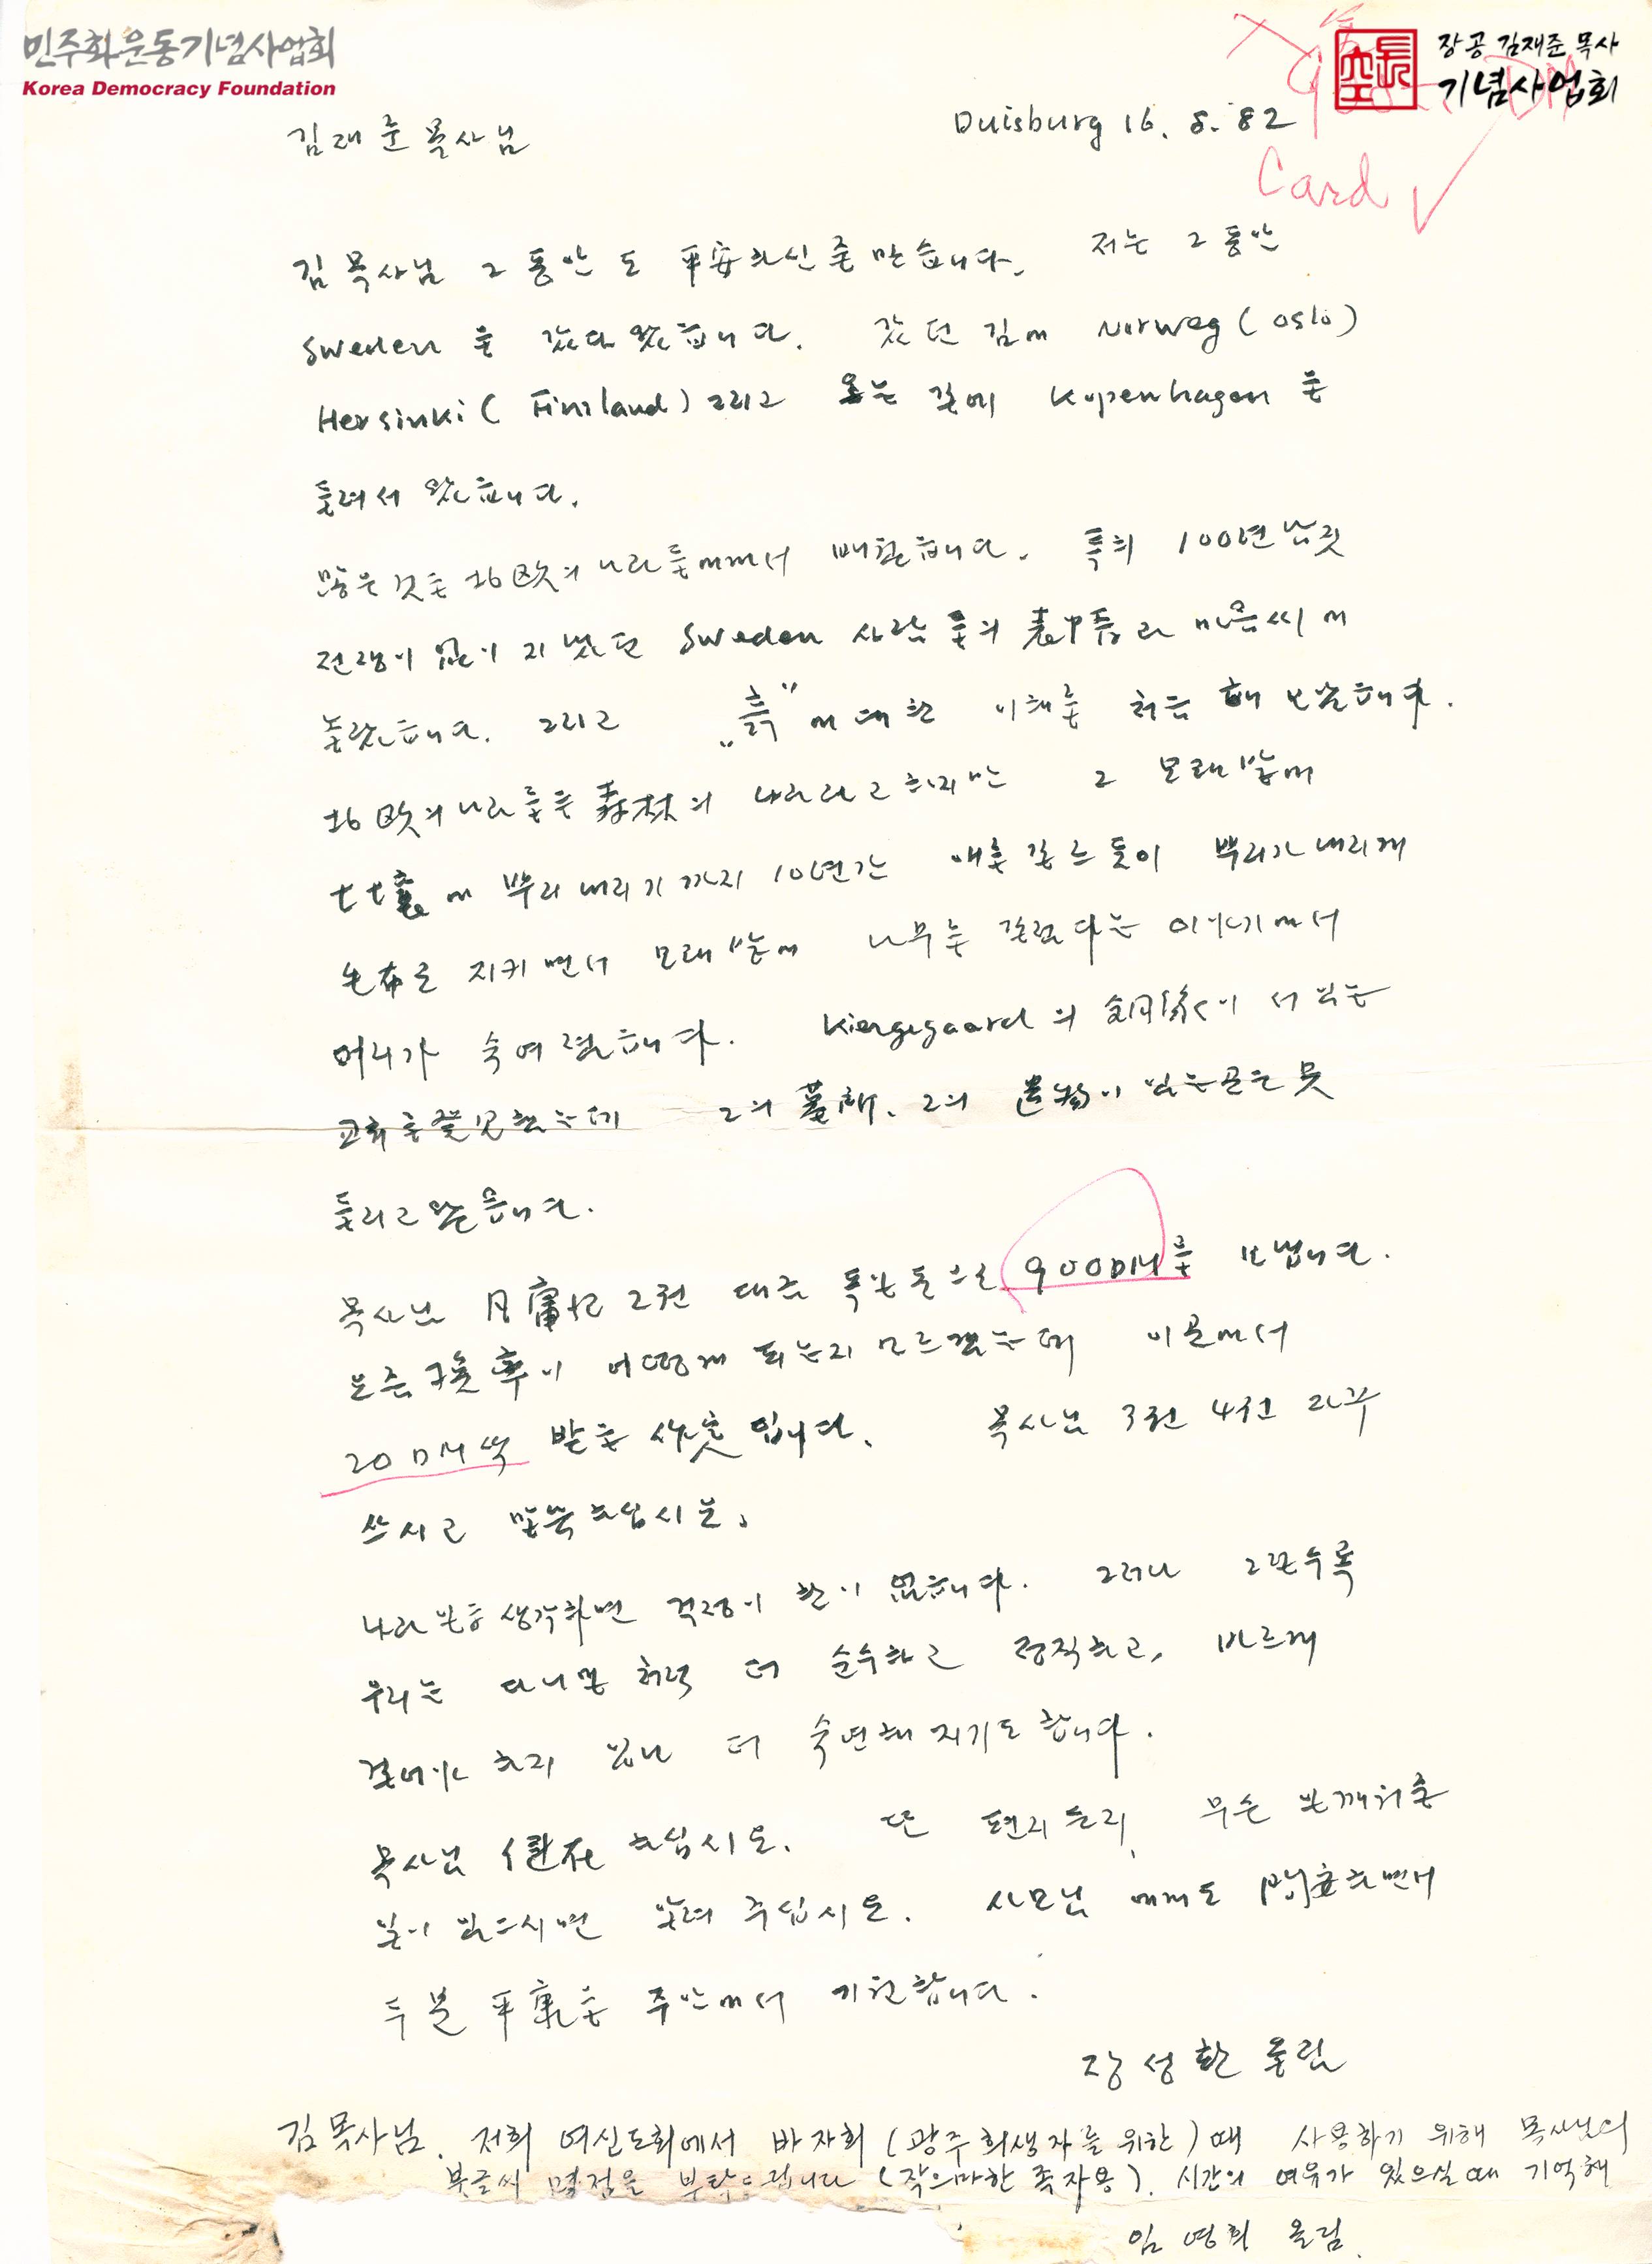 민주화운동기념사업회
Korea Democracy Foundation
장공 김재준 목사
기념사업회
Card
김재준목사님
Duisburg 16. 8. 82
김목사님 그동안도 平安하신줄 믿습니다. 저는 그동안
Sweden을 갔다 왔습니다. 갔던 김에 Norweg (Oslo)
Hersinki (Finnland) 그리고 오는 길에 Kopenhagen을
들려서 왔습니다.
많은 것을 北欧의 나라들에게서 배웠습니다. 특히 100년 남짓
전쟁이 없이 지냈던 Sweden 사람들의 과 마음씨에
놀랐습니다. 그리고 „흙"에 대한 이해를 처음 해 보았습니다.
北欧의 나라들을 森林의 나라라고 하지만 그 모래밭에
土壤에 뿌리 내리기까지 10년간 애를 듯이 뿌리가 내리게
毛布로 지키면서 모래밭에 나무를 길렀다는 이야기에서
머리가 숙여졌습니다. Kiergegaard의 銅像이 서 있는
교회를 發見했는데 그의 墓所, 그의 遺物이 있는 곳은 못
들리고 왔습니다.
목사님 凡庸記 2권 대금 독일돈으로 900DM을 보냅니다.
요즘 換率이 어떻게 되는지 모르겠는데 이곳에서
20DM씩 받을 作定입니다. 목사님 3권 4권 자꾸
쓰시고 말씀하십시오.
나라 일을 생각하면 걱정이 한이 없습니다. 그러나 그럴수록
우리는 다니엘처럼 더 순수하고 정직하고, 바르게
걸어야 하지 않나 더 숙연해지기도 합니다.
목사님 健在하십시오. 또 편리 들리, 무슨 보깨치올
일이 있으시면 알려 주십시오. 사모님에게도 問安하면서
두분 平康을 주안에서 기원합니다.
장성환 올림
김목사님. 저희 여신도회에서 바자회 (광주 희생자를 위한) 때 사용하기 위해 목사님의
붓글씨 몇점을 부탁드립니다 (작으마한 족자용). 시간의 여유가 있으실때 기억해
임영희 올림.